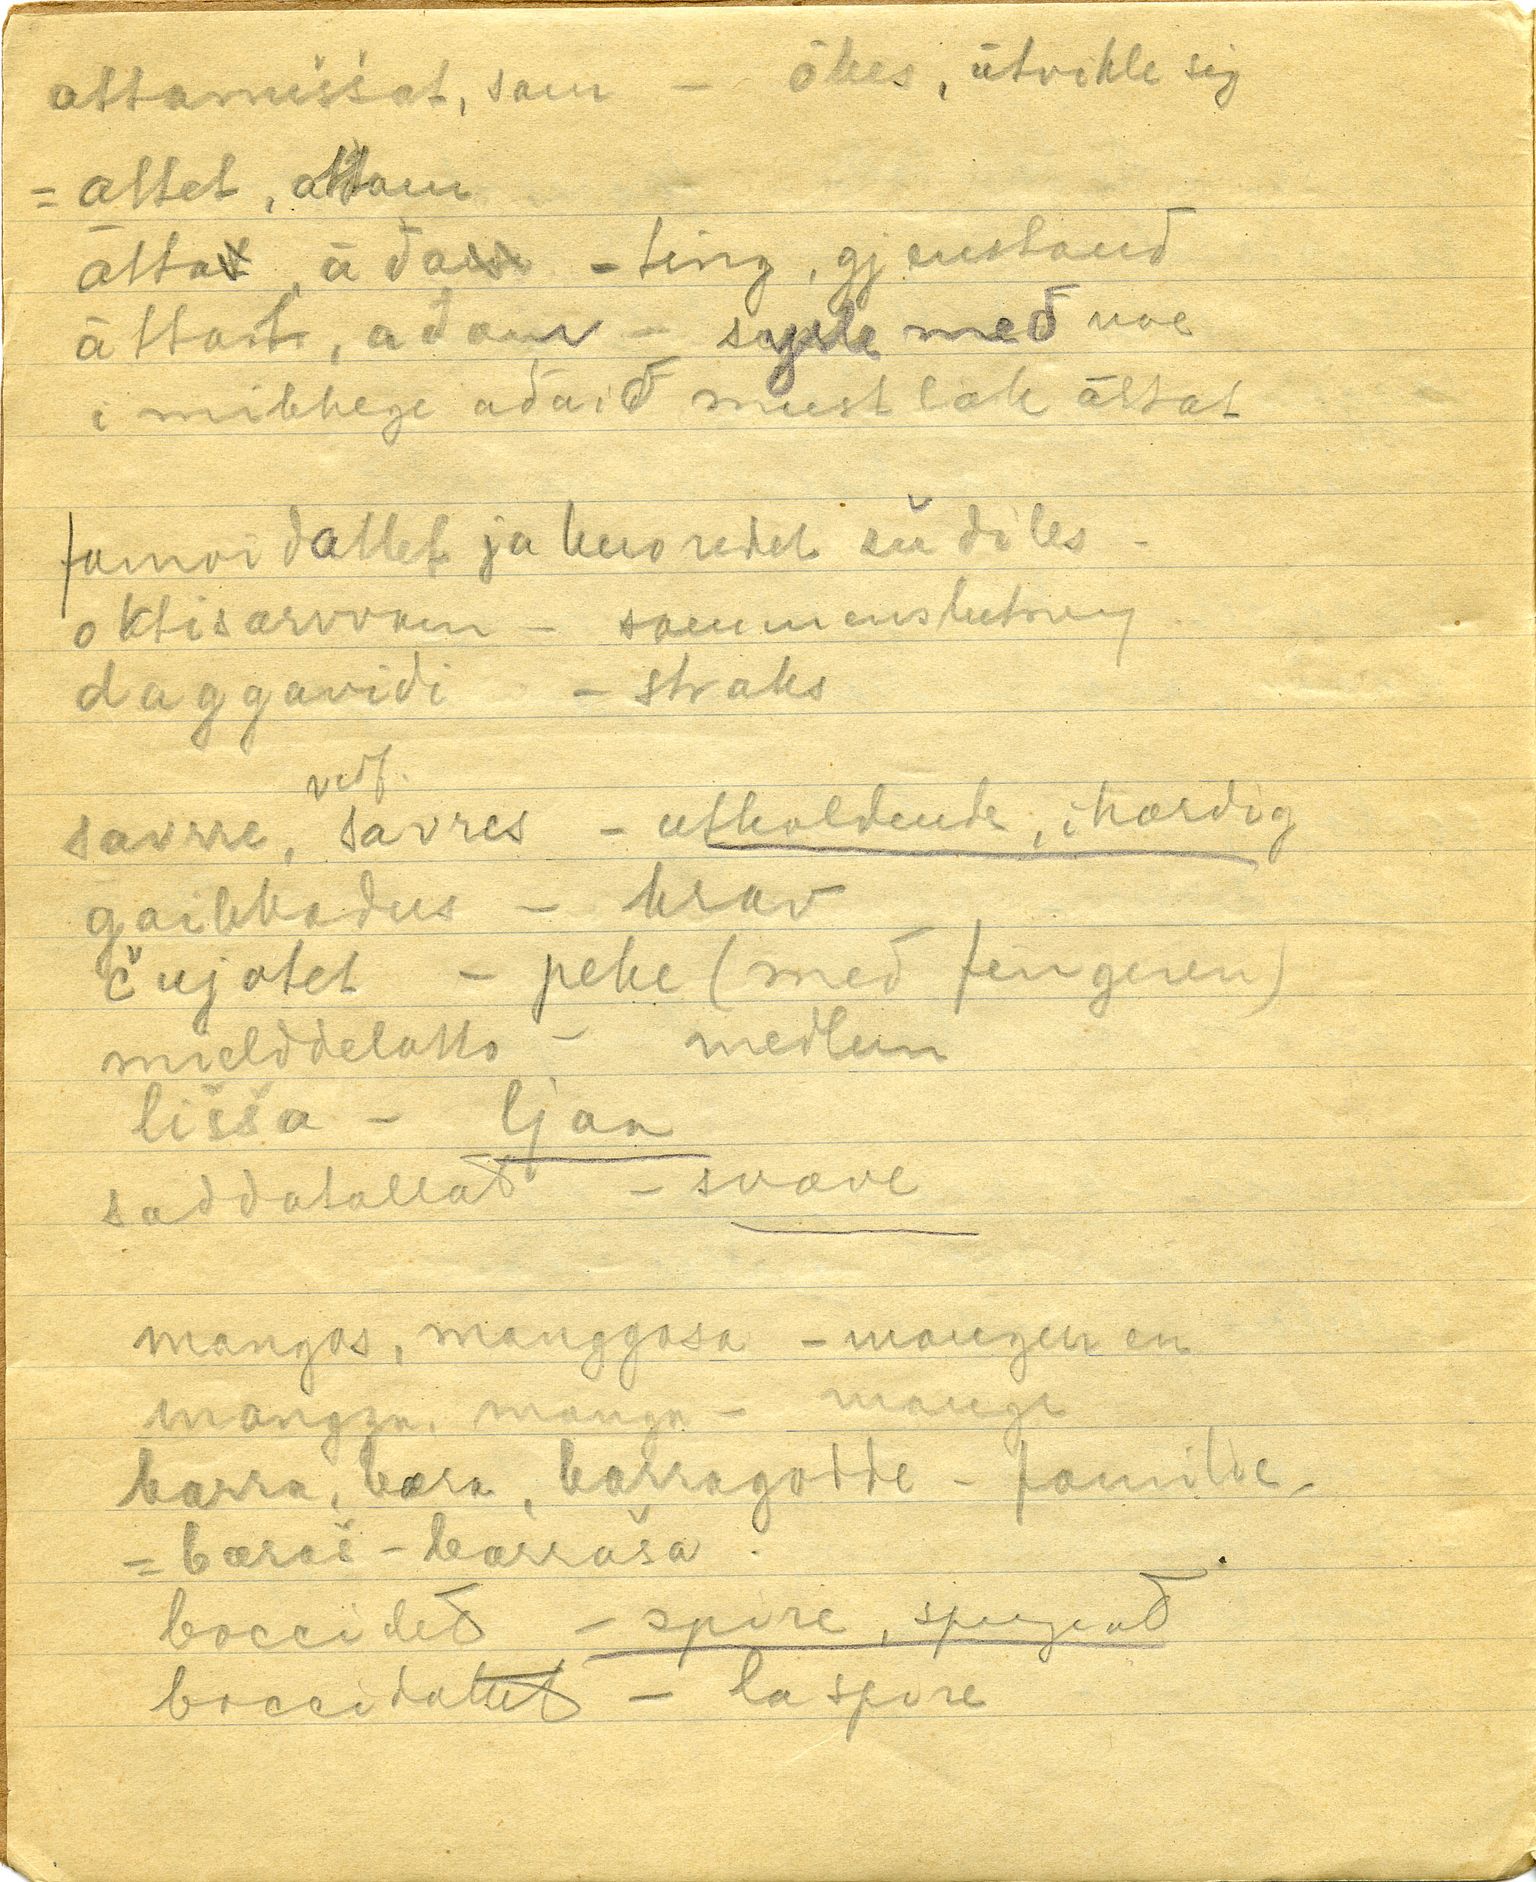 attamiššat, sam – ökes, utvikle sig
= attet, attam
ātta, āđa – ting, gjenstand
āttat, ađam – sysle med noe
i mikkege ađaid must læk āttat
famoidattet ja kuoredet
oktisærvvam – sammenslutning
daggavidi – straks
vedf.
savrre, savres – utholdende, ihærdig
gaibbadus – krav
čujotet – peke (med fingeren)
mielddelatto – medlem
lišša – ljan
saddatallat – sveve
mangas, manggasa – mangen en
mangga, manga – mange
bærra, bæra, bærragodde – familie
= bæraš – bærraša
boccidet – spire, springe ut
boccidattet – la spire